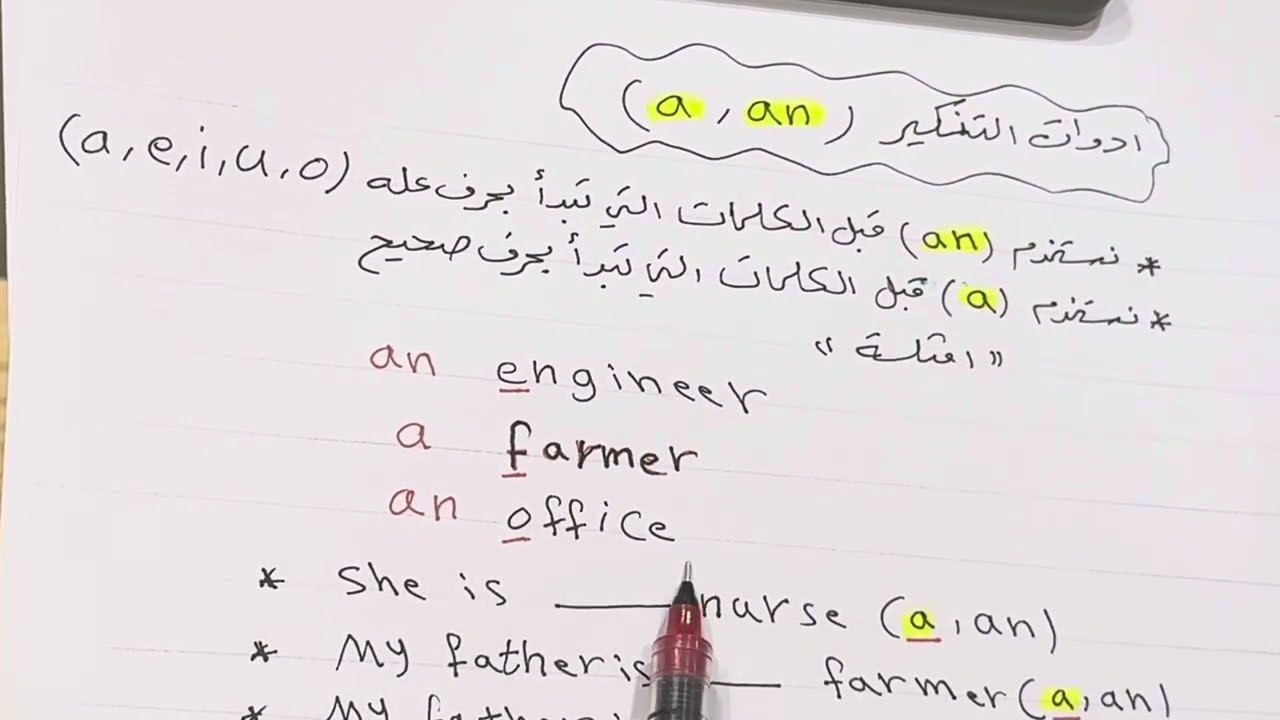 ادوات التنكير (a , an)
* نستخدم (an) قبل الكلمات التي تبدأ بحرف عله (a, e, i, u, o)
* نستخدم (a) قبل الكلمات التي تبدأ بحرف صحيح
"امثلة"
an engineer
a farmer
an office
* She is ____ nurse (a, an)
* My father is ____ farmer (a, an)
* My